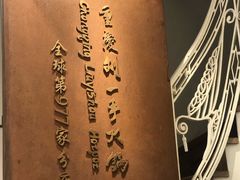 重慶刘一手火鍋
Chongqing LiuyiShou Hotpot
全球第977家分店